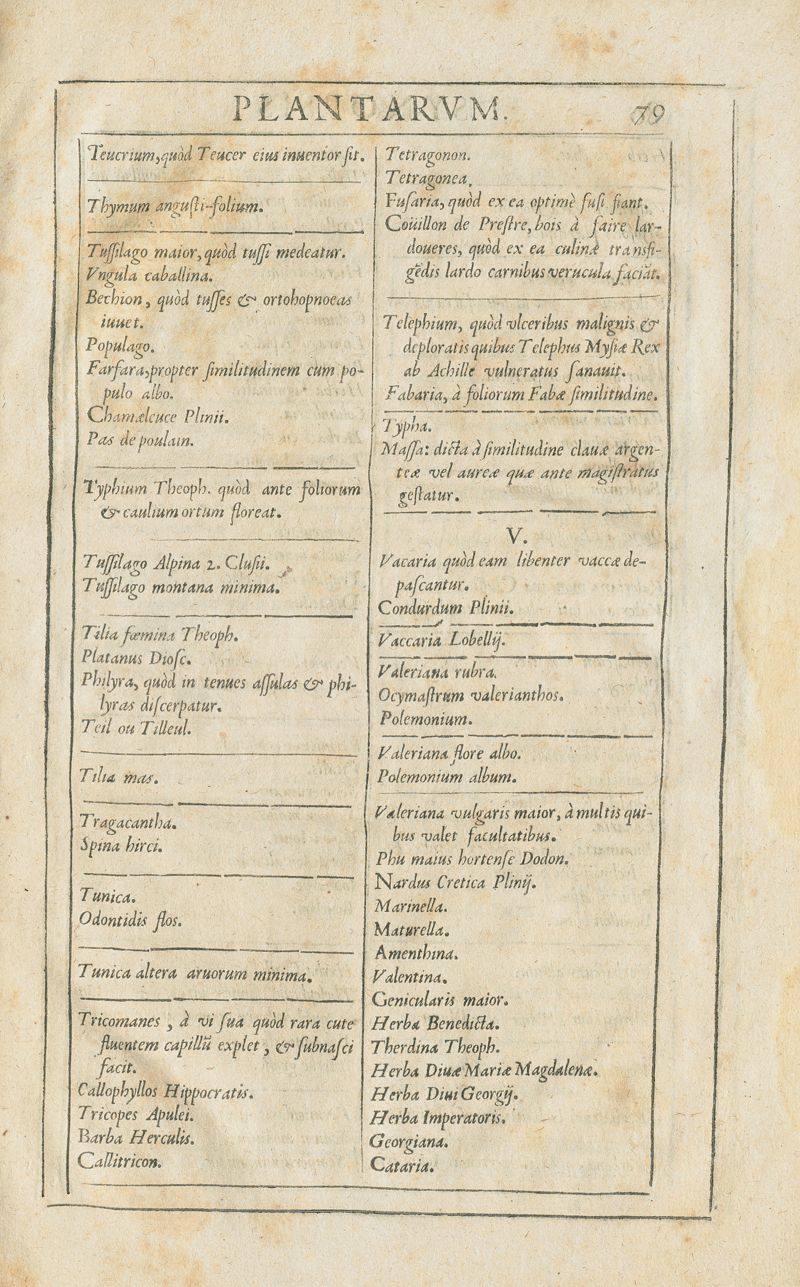 PLANTARVM.
79
Teucrium, quòd Teucer eius inuentor ſit.
Thymum anguſti-folium.
Tuſſilago maior, quòd tuſſi medeatur.
Vngula caballina.
Bechion, quòd tuſſes & ortohopnoeas
iuuet.
Populago.
Farfara, propter ſimilitudinem cum po-
pulo albo.
Chamæleuce Plinii.
Pas de poulain.
Typhium Theoph. quòd ante foliorum
& caulium ortum floreat.
Tuſſilago Alpina 2. Cluſii.
Tuſſilago montana minima.
Tilia fœmina Theoph.
Platanus Dioſc.
Philyra, quòd in tenues aſſulas & phi-
lyras diſcerpatur.
Teil ou Tilleul.
Tilia mas.
Tragacantha.
Spina hirci.
Tunica.
Odontidis flos.
Tunica altera aruorum minima.
Tricomanes, à vi ſua quòd rara cute
fluentem capillū explet, & ſubnaſci
facit.
Callophyllos Hippocratis.
Tricopes Apulei.
Barba Herculis.
Callitricon.
Tetragonon.
Tetragonea.
Fuſaria, quòd ex ea optimè fuſi fiant.
Coüillon de Preſtre, bois à faire lar-
doueres, quòd ex ea culinæ tranſfi-
gēdis lardo carnibus verucula faciāt.
Telephium, quòd vlceribus malignis &
deploratis quibus Telephus Myſiæ Rex
ab Achille vulneratus ſanauit.
Fabaria, à foliorum Fabæ ſimilitudine.
Typha.
Maſſa: dicta à ſimilitudine clauæ argen-
teæ vel aureæ quæ ante magiſtratus
geſtatur.
V.
Vacaria quòd eam libenter vaccæ de-
paſcantur.
Condurdum Plinii.
Vaccaria Lobellij.
Valeriana rubra.
Ocymaſtrum valerianthos.
Polemonium.
Valeriana flore albo.
Polemonium album.
Valeriana vulgaris maior, à multis qui-
bus valet facultatibus.
Phu maius hortenſe Dodon.
Nardus Cretica Plinij.
Marinella.
Maturella.
Amenthina.
Valentina.
Genicularis maior.
Herba Benedicta.
Therdina Theoph.
Herba Diuæ Mariæ Magdalenæ.
Herba Diui Georgij.
Herba Imperatoris.
Georgiana.
Cataria.